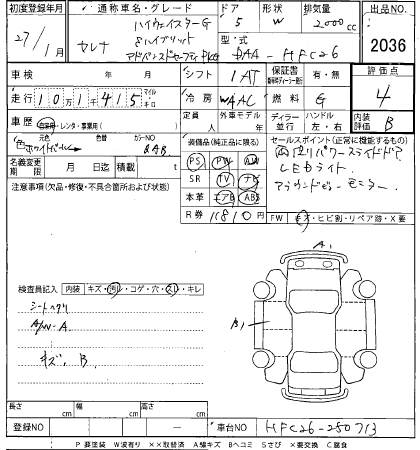 初度登録年月 通称車名・グレード ドア 形状 排気量 出品NO.
27/1月 セレナ ハイウェイスターG 5 W 2000cc
Sハイブリット 型・式 2036
アドバンスドセーフティPKG DAA-HFC26
車検 年 月 シフト 1AT 保証書 有・無 評価点
走行 10万1千415 マイル キロ 冷房 WAAC 燃料 G 4
車歴 自家用・レンタ・事業用( ) 定員 人 外車モデル 年 ディーラー 並行 ハンドル 左・右 内装評価 B
元色 色替 カラーNO
色 ホワイトパール QAB
装備品(純正品に限る) セールスポイント(正常に機能するもの)
名義変更期限 月 日迄 積載 t
PS PW AW 両側パワースライドドア
SR TV ナビ LEDライト
本革 エアB ABS アラウンドビューモニター
注意事項(欠品・修復・不具合箇所および状態)
R券 11810円
FW キズ・ヒビ割・リペア跡・X要
A1
検査員記入 内装 キズ・汚れ・コゲ・穴・スレ・キレ
シートヘタリ
A/W-A
B1
キズ、B
長さ cm 幅 cm 高さ cm
登録NO ー 車台NO HFC26-250713
P 要塗装 W波有り ××取替済 A線キズ Bヘコミ Sさび ×要交換 C腐食